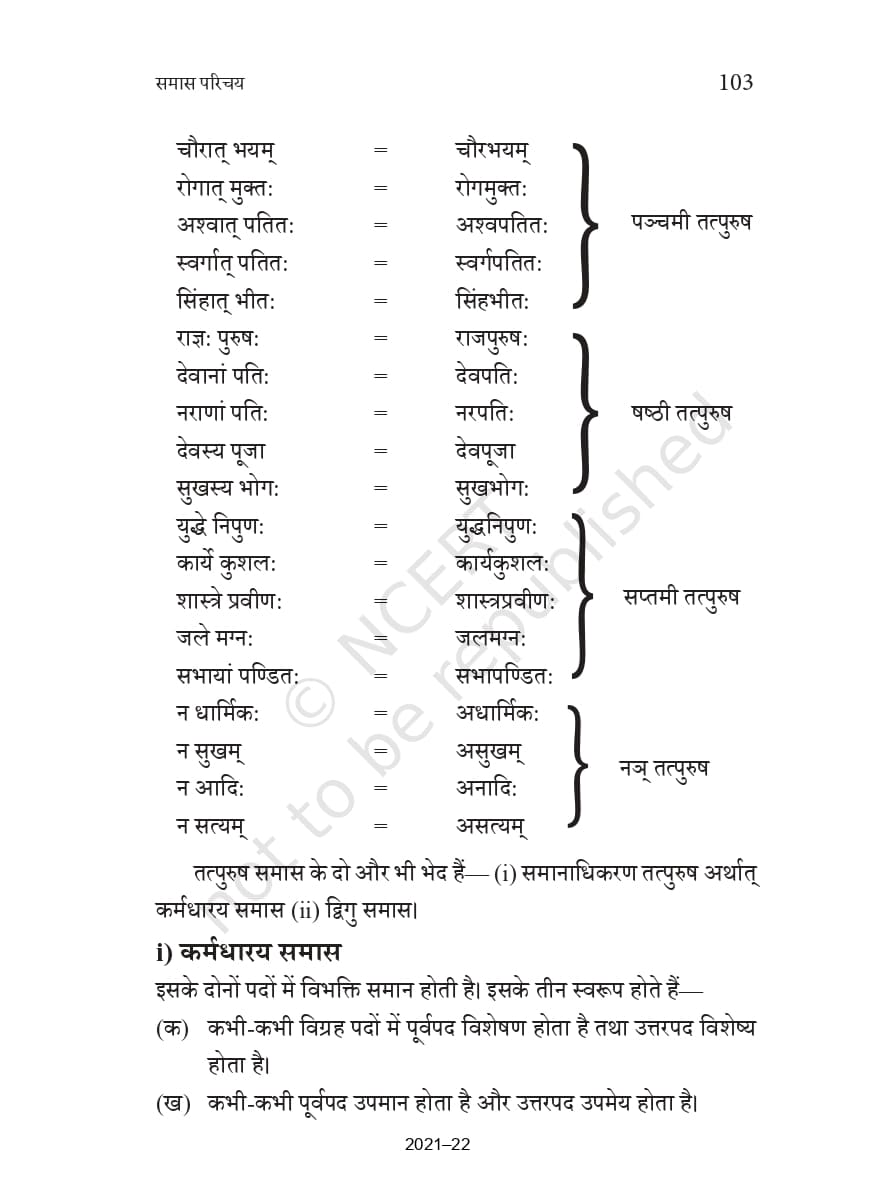 समास परिचय 103
चौरात् भयम् = चौरभयम्
रोगात् मुक्त: = रोगमुक्त:
अश्वात् पतित: = अश्वपतित: पञ्चमी तत्पुरुष
स्वर्गात् पतित: = स्वर्गपतित:
सिंहात् भीत: = सिंहभीत:
राज्ञ: पुरुष: = राजपुरुष:
देवानां पति: = देवपति:
नराणां पति: = नरपति: षष्ठी तत्पुरुष
देवस्य पूजा = देवपूजा
सुखस्य भोग: = सुखभोग:
युद्धे निपुण: = युद्धनिपुण:
कार्ये कुशल: = कार्यकुशल:
शास्त्रे प्रवीण: = शास्त्रप्रवीण: सप्तमी तत्पुरुष
जले मग्न: = जलमग्न:
सभायां पण्डित: = सभापण्डित:
न धार्मिक: = अधार्मिक:
न सुखम् = असुखम् नञ् तत्पुरुष
न आदि: = अनादि:
न सत्यम् = असत्यम्
तत्पुरुष समास के दो और भी भेद हैं— (i) समानाधिकरण तत्पुरुष अर्थात्
कर्मधारय समास (ii) द्विगु समास।
i) कर्मधारय समास
इसके दोनों पदों में विभक्ति समान होती है। इसके तीन स्वरूप होते हैं—
(क) कभी-कभी विग्रह पदों में पूर्वपद विशेषण होता है तथा उत्तरपद विशेष्य
होता है।
(ख) कभी-कभी पूर्वपद उपमान होता है और उत्तरपद उपमेय होता है।
2021–22
© NCERT
not to be republished